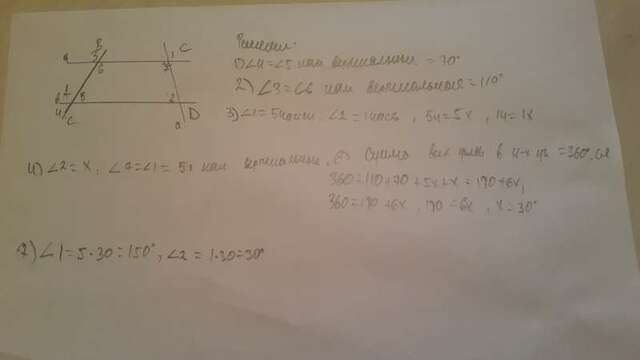 B
a 3 1 C
6 7
4 5 2 D
C a
Решение:
1) ∠4=∠5 как вертикальные = 70°
2) ∠3=∠6 как вертикальная = 110°
3) ∠1=5части, ∠2=1часть, 5ч=5x, 1ч=1x
4) ∠2=x, ∠1=5x как вертикальные. Сумма всех углов в 4-х =360°
360=110+70+5x+x=170+6x,
360=170+6x, 170=6x, x=30°
7) ∠1=5·30=150°, ∠2=1·30=30°